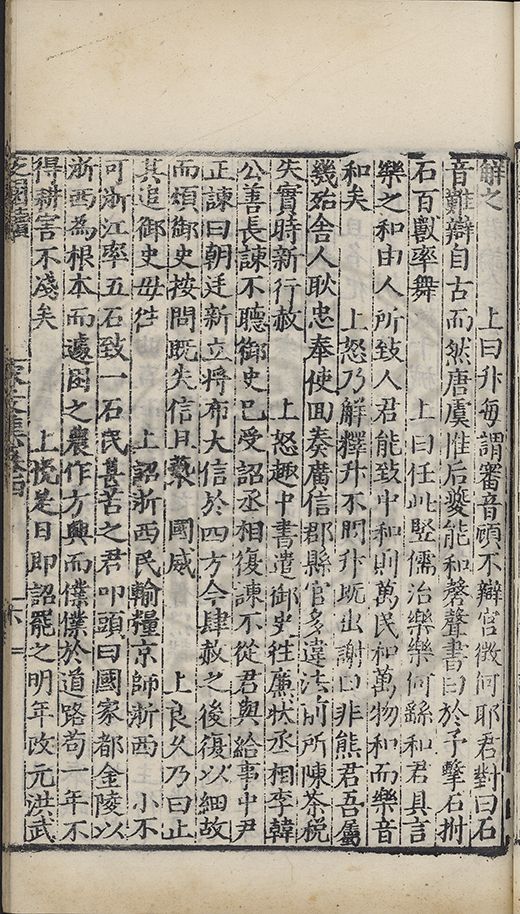 解之　　上曰升每謂審音顧不辯宮徵何耶君對曰石
音難辯自古而然唐虞惟后夔能和磬聲書曰於予擊石拊
石百獸率舞　　上曰任此豎儒治樂樂何繇和君具言
樂之和由人所致人君能致中和則萬民和萬物和而樂音
和矣　　上怒乃解釋升不問升既出謝曰非熊君吾屬
幾殆舍人耿忠奉使回奏廣信郡縣官多違法前所陳茶稅
失實時新行赦　　上怒趣中書遣御史往廉狀丞相李韓
公善長諫不聽御史已受詔丞相復諫不從君與給事中尹
正諫曰朝廷新立將布大信於四方今肆赦之後復以細故
而煩御史按問既失信且褻　國威　　上良久乃曰止
其追御史毋往　　上詔浙西民輸糧京師浙西　小不
可浙江率五石致一石民甚苦之君叩頭曰國家都金陵以
浙西為根本而遽困之農作方興而僕僕於道路苟一年不
得耕害不淺矣　　上悅是日即詔罷之明年改元洪武
芝園